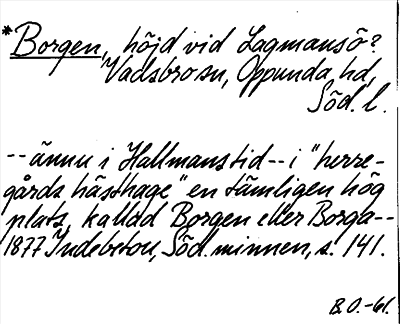 *Borgen, höjd vid Lagmansö?
Vadsbro sn, Oppunda hd,
Söd. l.
--ännu i Hallmans tid--i "herre-
gårds hästhage" en tämligen hög
plats, kallad Borgen eller Borga--
1877 Indebetou, Söd. minnen, s. 141.
B.O.-61.